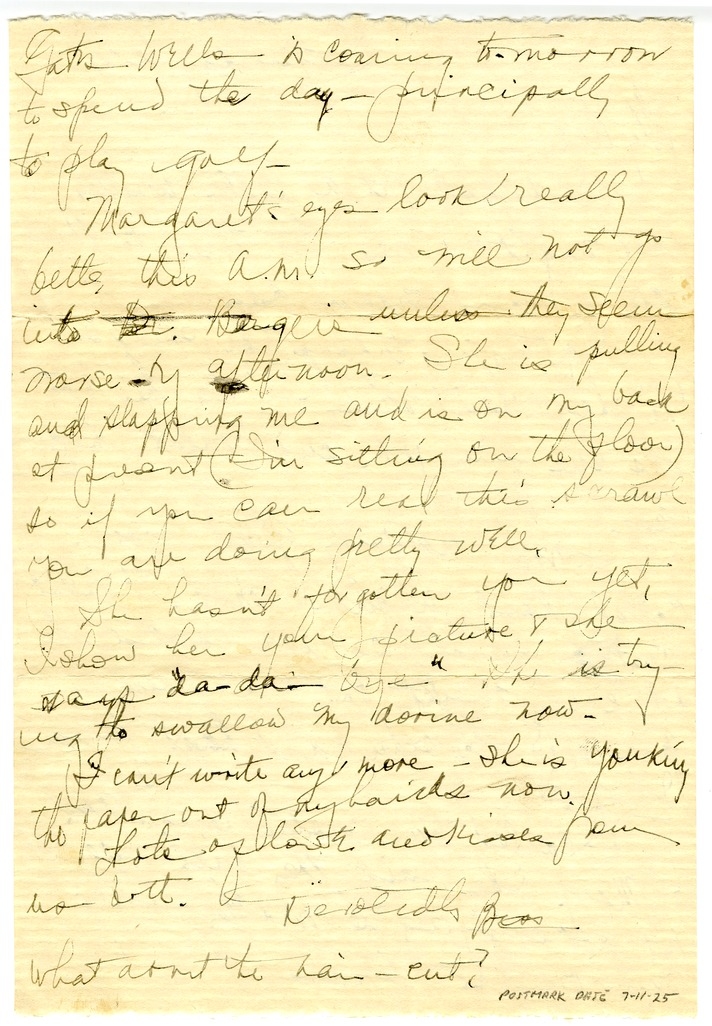 Wells is coming to-morrow
to spend the day – principally
to play golf –
Margaret's eyes look really
better this a.m. so will not go
into Dr. unless they seem
worse by afternoon. She is pulling
and slapping me and is on my back
at present (I'm sitting on the floor)
so if you can read this scrawl
you are doing pretty well.
She hasn't forgotten you yet,
I show her your picture & she
says "da-da- bye" She is try-
ing to swallow my dorine now.
I can't write any more – she is yonking
the paper out of my hands now.
Lots of love and kisses from
us both.
Devotedly
what about the hair-cut?
POSTMARK DATE 7-11-25